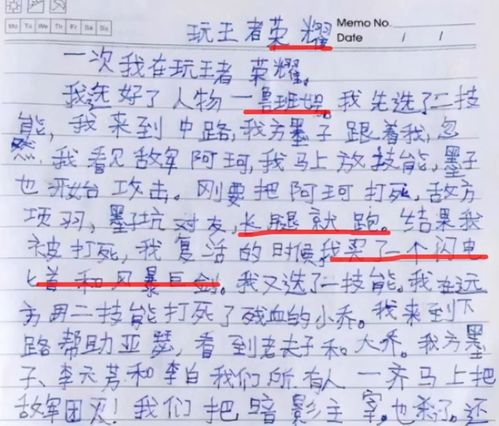 Memo No.
Mo Tu We Th Fr Sa Su
Date / /
玩王者荣耀
一次我在玩王者荣耀。
我选好了人物一鲁班娘。我先选了二技
能，我来到中路，我方墨子跟着我，忽
然，我看见敌军阿珂，我马上放技能，墨子
也开始攻击。刚要把阿珂打死，敌方
项羽，墨坑对友，长腿就跑。结果我
被打死，我复活的时候我买了一个闪电
匕首和风暴巨剑。我又选了一技能。我在远
方用二技能打死了残血的小乔。我来到下
路帮助亚瑟，看到老夫子和大乔。我方墨
子、李元芳和李白我们所有人一齐马上把
敌军团灭！我们把暗影主宰也杀了。还